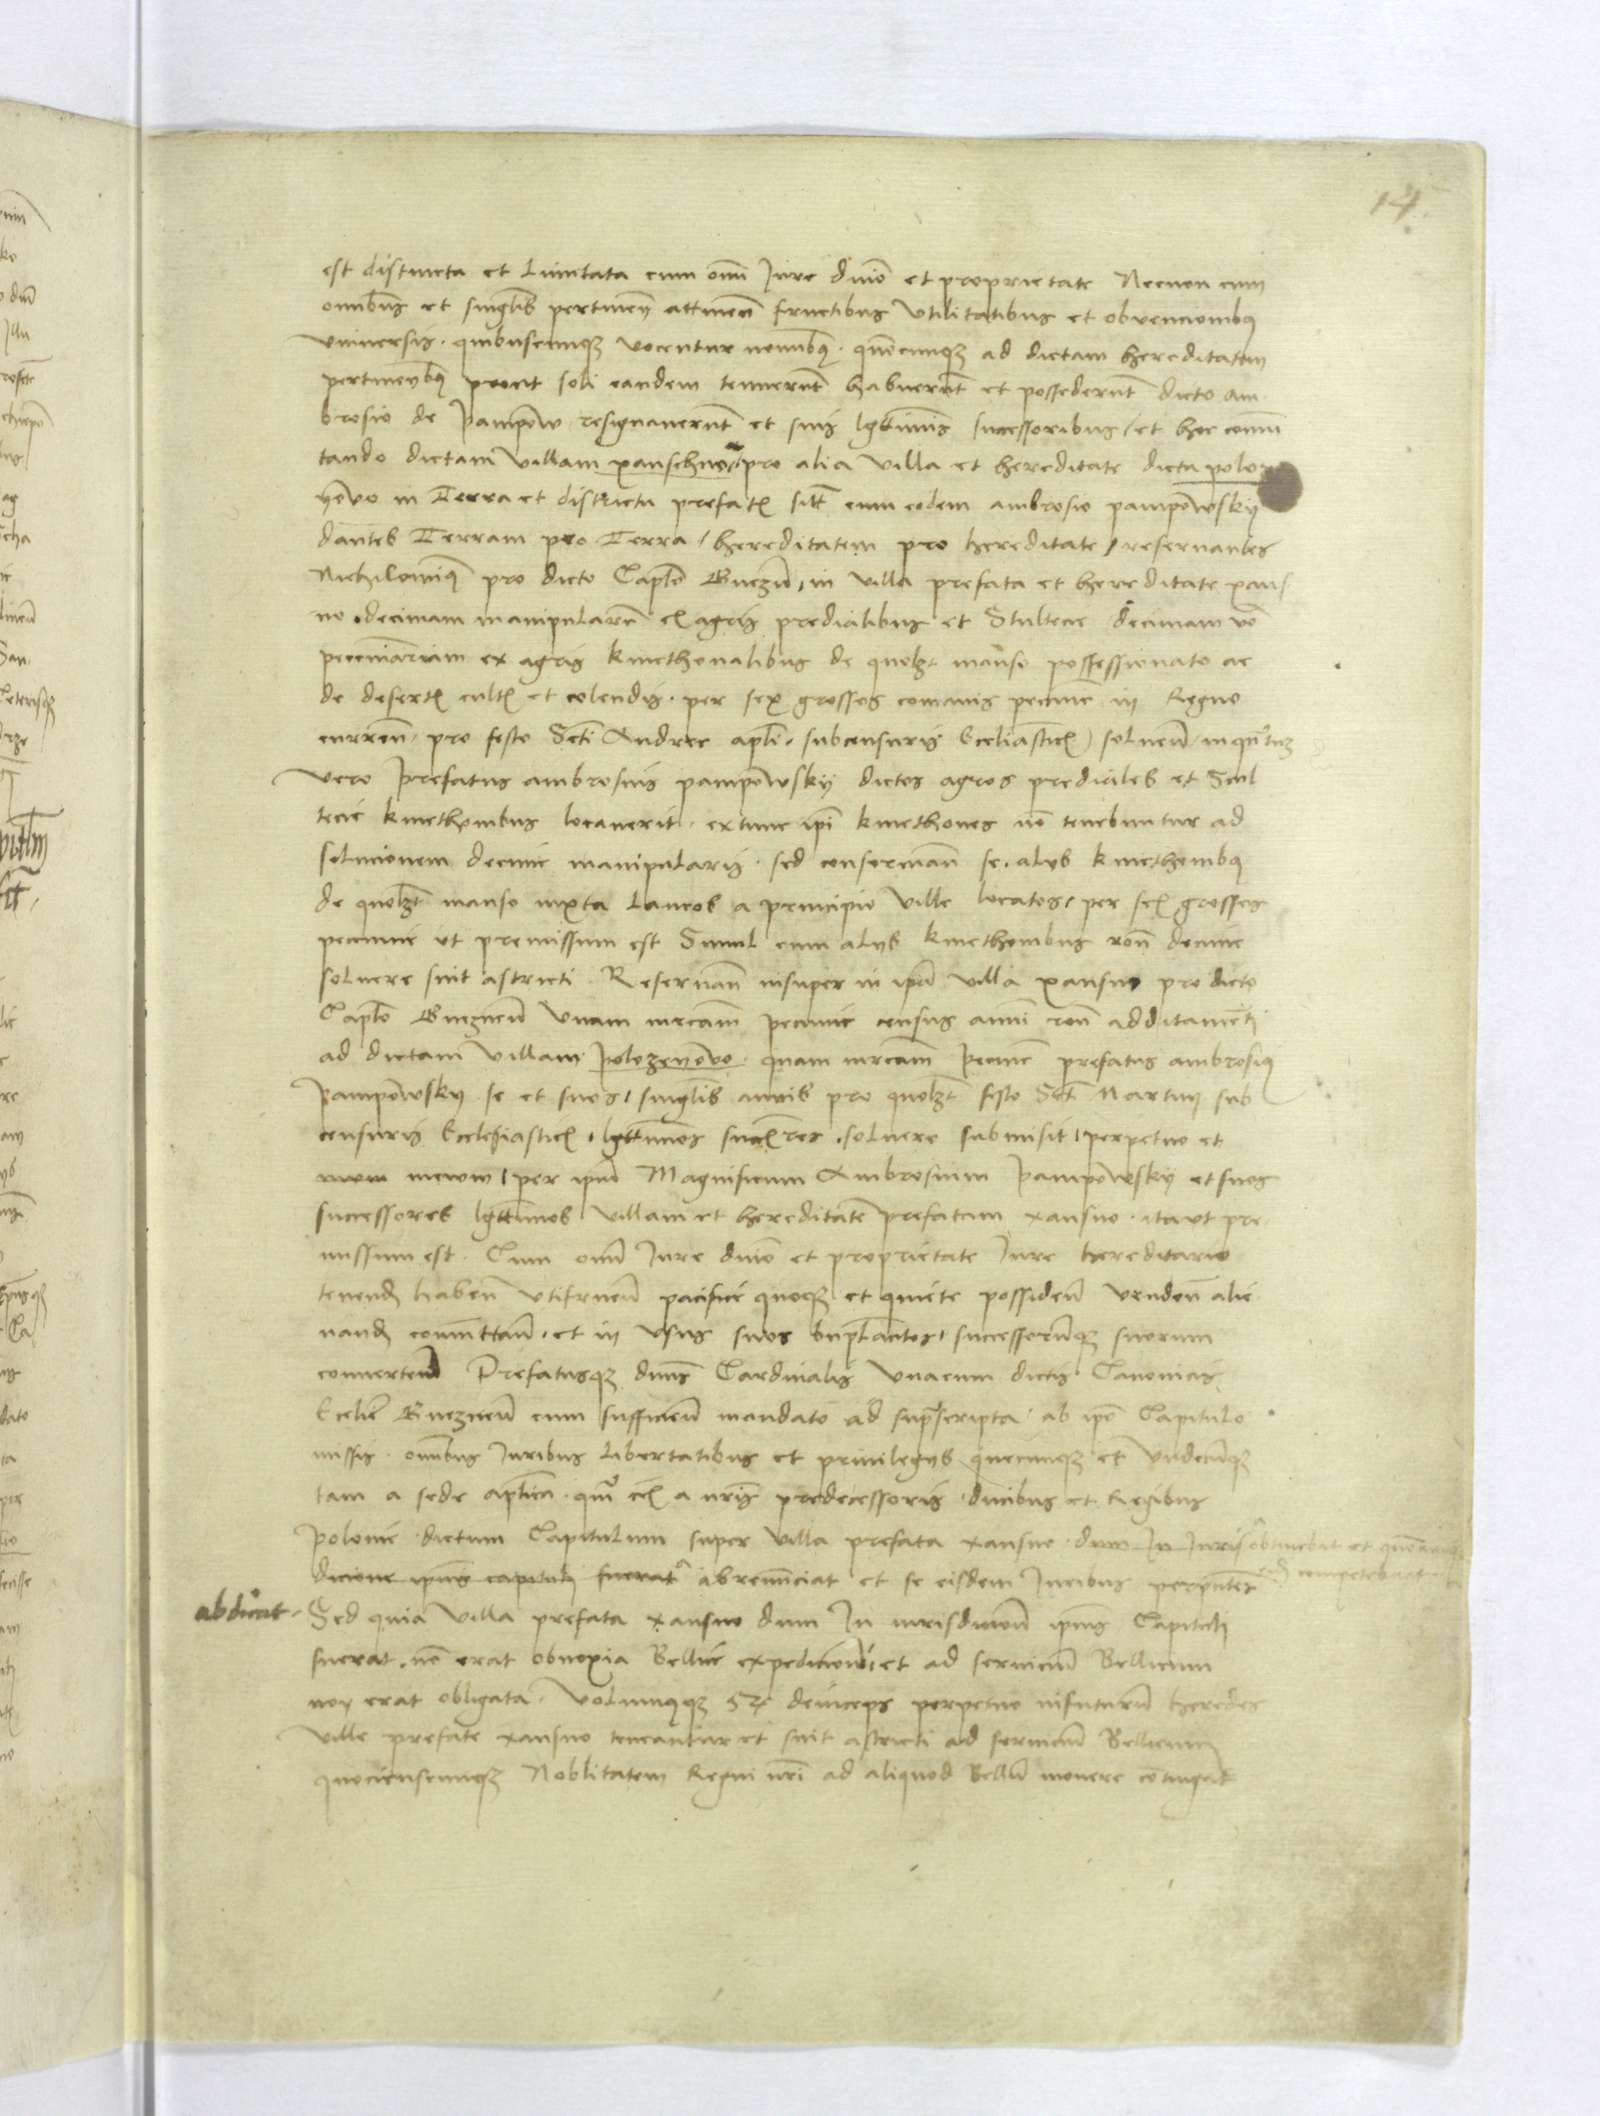 14.
est distincta et limitata cum omni Jure dnio et proprietate Necnon cum
omnibus et singlis pertinen attinen fructibus Utilitatibus et obvencionibus
Universis. quibuscumque vocentur nominibus. quomocumque ad dictam hereditatem
pertinenbus prout soli eandem tenuerunt habuerunt et possederunt dicto am
brosio de pampow resignaverunt et suis lgttimis successoribus / et hoc comu
tando dictam villam xanschno pro alia villa et hereditate dicta poloze
yewo in Terra et districtu prefatis sitt cum eodem ambrosio pampowsky
dantes Terram pro Terra / hereditatem pro hereditate / reservantes
Nichilominus pro dicto Caplo Gneznen, in villa prefata et hereditate xans
no. decimam manipularem ex agris predialibus et Scultecie decimam vo
pecuniariam ex agris kmethonalibus de quolzt manso possessionato ac
de desertis cultis et colendis. per sex grossos comunis pecunie in Regno
curren. pro festo Scti Andree apli. sub censuris Eccliasticis solven. inquantum
vero prefatus ambrosius pampowsky dictos agros prediales et Scul
tecie kmethonibus locaverit. extunc ipi kmethones no tenebuntur ad
solucionem decime manipularis. sed conforman se. alijs kmethonibus
de quolzt manso iuxta laneos a principio ville locatos, per sex grosses
pecunie ut premissum est Simul cum alijs kmethonibus ron decime
solvere sint astricti. Reservan insuper in ipa villa xansno pro dicto
Caplo Gneznen Unam mrcam pecunie census annui ron additamenti
ad dictam villam polozeyewo. quam mrcam pecunie prefatus ambrosius
pampowsky se et suos / singlis annis pro quolzt festo Scti Martini sub
censuris Ecclesiasticis. lgttimos succres. solvere submisit / perpetuo et
inewum / per ipum Magnificum Ambrosium pampowsky et suos
successores lgttimos villam et hereditatem prefatam xansno. ita ut pre
missum est. Cum omni Jure dnio et proprietate Jure hereditario
tenend haben utifruen pacifice quoque et quiete possiden venden alie
nand committan. et in usus suos bnplacitos, successorumque suorum
converten Prefatusque dnus Cardinalis Unacum dictis Canonicis
Ecclie Gneznen cum sufficien mandato ad suprascripta ab ipo Capitulo
missis. omnibus Juribus libertatibus et privilegijs quecumque et Undecumque
tam a sede aptica. qm eciam a nris predecessoris ducibus et Regibus
polonie dictum Capitulum super villa prefata xansno. dum In Juris obtinebat et
dicione ipius capituli fuerat abrenunciat et se eisdem Juribus competebant
abdicat. Sed quia villa prefata xansno dum In iurisdicione ipius Capituli
fuerat. no erat obnoxia Bellice expedicioni, et ad servicium Bellicum
non erat obligata. Volumusque deinceps perpetuo infuturum heredes
ville prefate xansno teneantur et sint astricti ad servicium Bellicum
quocienscumque Nobilitatem Regni nri ad aliquod Bellum movere contingat